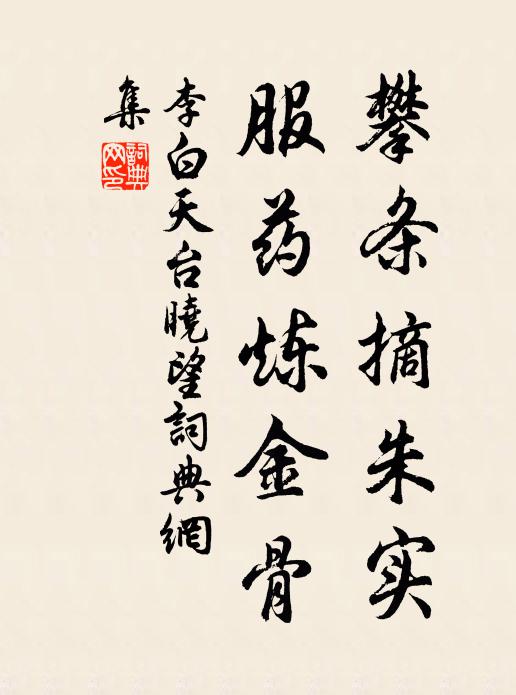 攀条摘朱实
服药炼金骨
李白天台曉望詞典網
集
詞典
网印